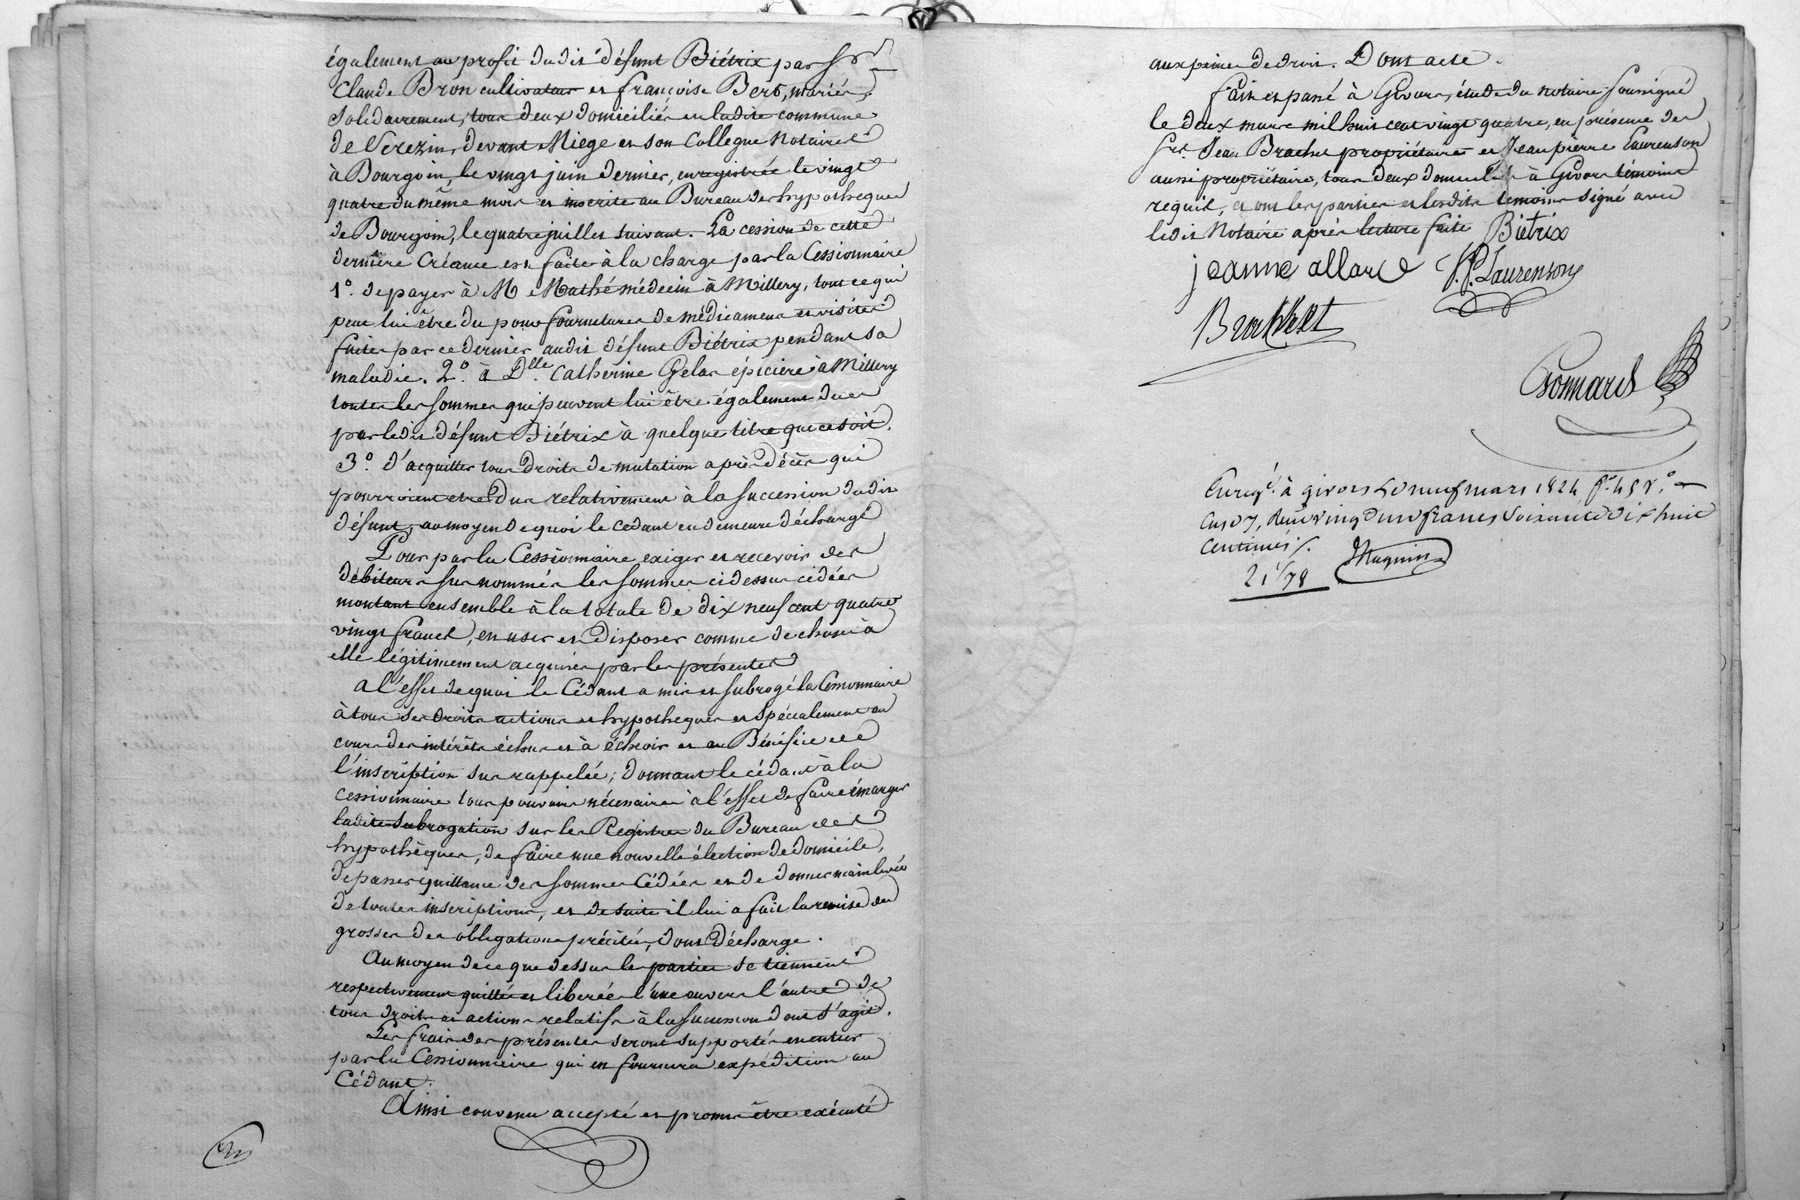 également au profit dudit défunt Biétrix par Sr
Claude Bron cultivateur et françoise Bert, mariés,
solidairement, tous deux domiciliés en ladite commune
de Verezin, devant Miege et son Collegue Notaires
à Bourgoin, le vingt juin dernier, enregistrée le vingt
quatre du même mois et inscrite au Bureau des hypotheques
de Bourgoin, le quatre juillet suivant. La cession de cette
dernière Créance est faite à la charge par la Cessionnaire
1º. de payer à M Mathé médecin à Millery, tout ce qui
peut lui être du pour fournitures de médicamens et visites
faites par ce dernier audit défunt Biétrix pendant sa
maladie. 2º. à Dlle. Catherine Gelas épicière à Millery
toutes les sommes qui peuvent lui être également dues
par ledit défunt Biétrix à quelque titre que ce soit.
3º. d'acquitter tous droits de mutation après décès qui
pourroient etre dus relativement à la succession dudit
défunt, au moyen de quoi le cédant en demeure déchargé
Pour par la Cessionnaire exiger et recevoir des
débiteurs sus nommés les sommes ci dessus cédées
montant ensemble à la totale de dix neuf cent quatre
vingt francs, en user et disposer comme de choses à
elle légitimement acquises par les présentes
A l'effet de quoi le Cédant a mis et subrogé la Cessionnaire
à tous ses droits actions et hypotheques et spécialement au
cours des intérêts échus et à échoir et au Bénéfice de
l'inscription sus rappelée; donnant le cédant à la
cessionnaire tous pouvoirs nécessaires à l'effet de faire émarger
ladite subrogation sur les Registres du Bureau des
hypothèques, de faire une nouvelle élection de domicile,
de passer quittance des sommes Cédées et de donner mainlevée
de toutes inscriptions, et de suite il lui a fait la remise des
grosses des obligations précitées, dont décharge.
Au moyen de ce que dessus les parties se tiennent
respectivement quittes et liberées l'une envers l'autre de
tous droits et actions relatifs à la succession dont s'agit.
Les frais des présentes seront supportés en entier
par la Cessionnaire qui en fournira expédition au
Cédant.
Ainsi convenu accepté et promis être exécuté
aux peines de droit. Dont acte.
fait et passé à Givors, étude du notaire soussigné
le deux mars mil huit cent vingt quatre, en présence des
Srs. Jean Brachet propriétaire et Jean pierre Laurenson
aussi propriétaire, tous deux domiciliés à Givors témoins
requis, et ont les parties et lesdits temoins signé avec
ledit Notaire après lecture faite Biétrix
jeanne allard J. P. Laurenson
Brachet
Enregé. à givors le neuf mars 1824 fo. 45 vo.
Case 7, Reçu vingt un francs soixante dix huit
centimes
21f 78